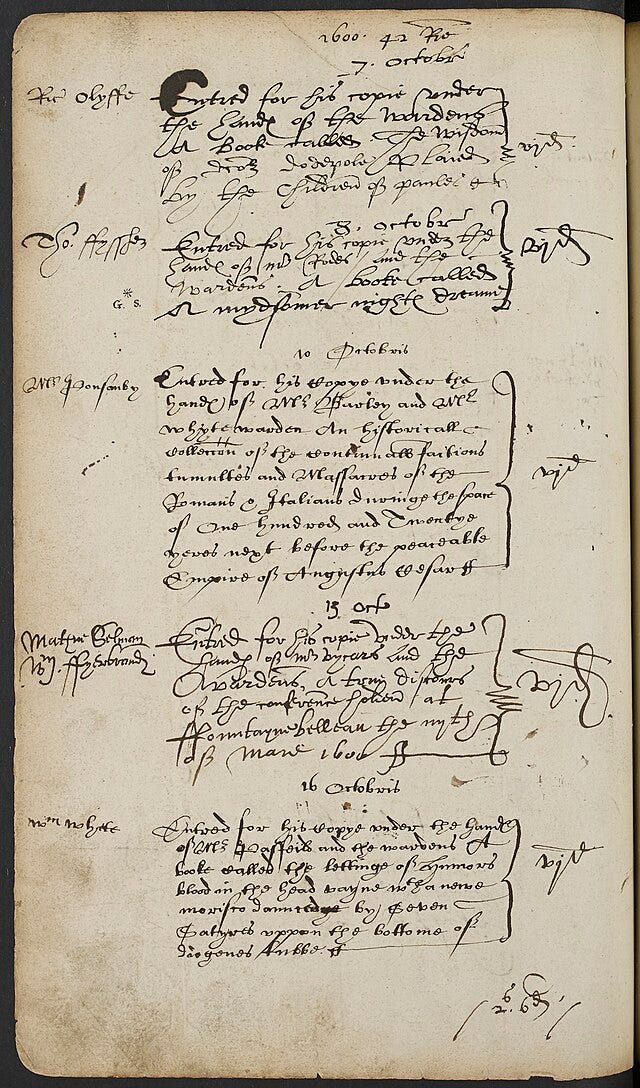 1600. 42 Re
7. Octobr
Ric Olyffe
Entred for his copie under
the hands of the wardens
A Booke called The Wisdom
of Doctor Dodepole Plaied
by the Children of Paules &c
vjd
8. Octobr
Tho. ffyssher
Entred for his copie vnder the
hands of mr Rodes and the
Wardens. A booke called
A mydsomer nights dreame
vjd
* G. S.
10 Octobris
Mr Ponsonby
Entred for his copye vnder the
hands of Mr Harley and Mr
whyte warden An historicall
collection of the continuall factions
tumultes and Massacres of the
Romans & Italians duringe the space
of One hundred and Twentye
yeres next before the peaceable
Empire of Augustus Cesar
vjd
15 Octo
Mathue Selman
Wm. ffyerbrand
Entred for his copie vnder the
hands of mr vycars and the
Wardens, A true discours
of the conference holden at
ffountayne belleau the iiijth
of Maie 1600
vjd
16 Octobris
Wm whyte
Entred for his copye vnder the hands
of Mr Pasfeild and the wardens A
booke called the lettinge of humors
blood in the head vayne wth a newe
morisco daunced by Seven
Satyres vppon the bottome of
diogenes tubbe
vjd
2s. 6d